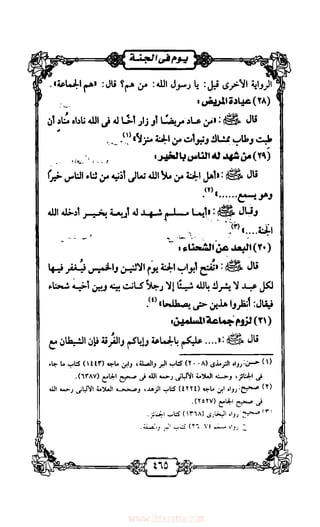 يوم فى الجنة
الرواية الأخرى قيل: يا رسول الله: من هم؟ قال: «هم الجماعة».
(٢٨) عيادة المريض:
قال ﷺ: «من عاد مريضًا أو زار أخًا له فى الله ناداه مناد أن
طبت وطاب ممشاك وتبوأت من الجنة منزلا»(١).
(٢٩) من شهد له الناس بالخير:
قال ﷺ: «أهل الجنة من ملأ الله تعالى أذنيه من ثناء الناس خيرًا
وهو يسمع......»(٢).
وقال ﷺ: «أيما مسلم شهد له أربعة بخير أدخله الله
الجنة....»(٣).
(٣٠) البعد عن الشحناء:
قال ﷺ: «تُفتح أبواب الجنة يوم الاثنين والخميس فيُغفر فيها
لكل عبد لا يشرك بالله شيئًا إلا رجلاً كانت بينه وبين أخيه شحناء
فيقال: أنظروا هذين حتى يصطلحا»(٤).
(٣١) لزوم جماعة المسلمين:
قال ﷺ: «.... عليكم بالجماعة وإياكم والفُرقة فإن الشيطان مع
(١) حسن: رواه الترمذى (٢٠٠٨) كتاب البر والصلة، وابن ماجه (١٤٤٣) كتاب ما جاء
فى الجنائز، وحسنه العلامة الألبانى رحمه الله فى صحيح الجامع (٦٣٨٧).
(٢) صحيح: رواه ابن ماجه (٤٢٢٤) كتاب الزهد، وصححه العلامة الألبانى رحمه الله
فى صحيح الجامع (٢٥٢٧).
(٣) صحيح: رواه البخارى (١٣٦٨) كتاب الجنائز.
رواه مسلم كتاب البر والصلة.
٤٦٥
www.ibtesama.com